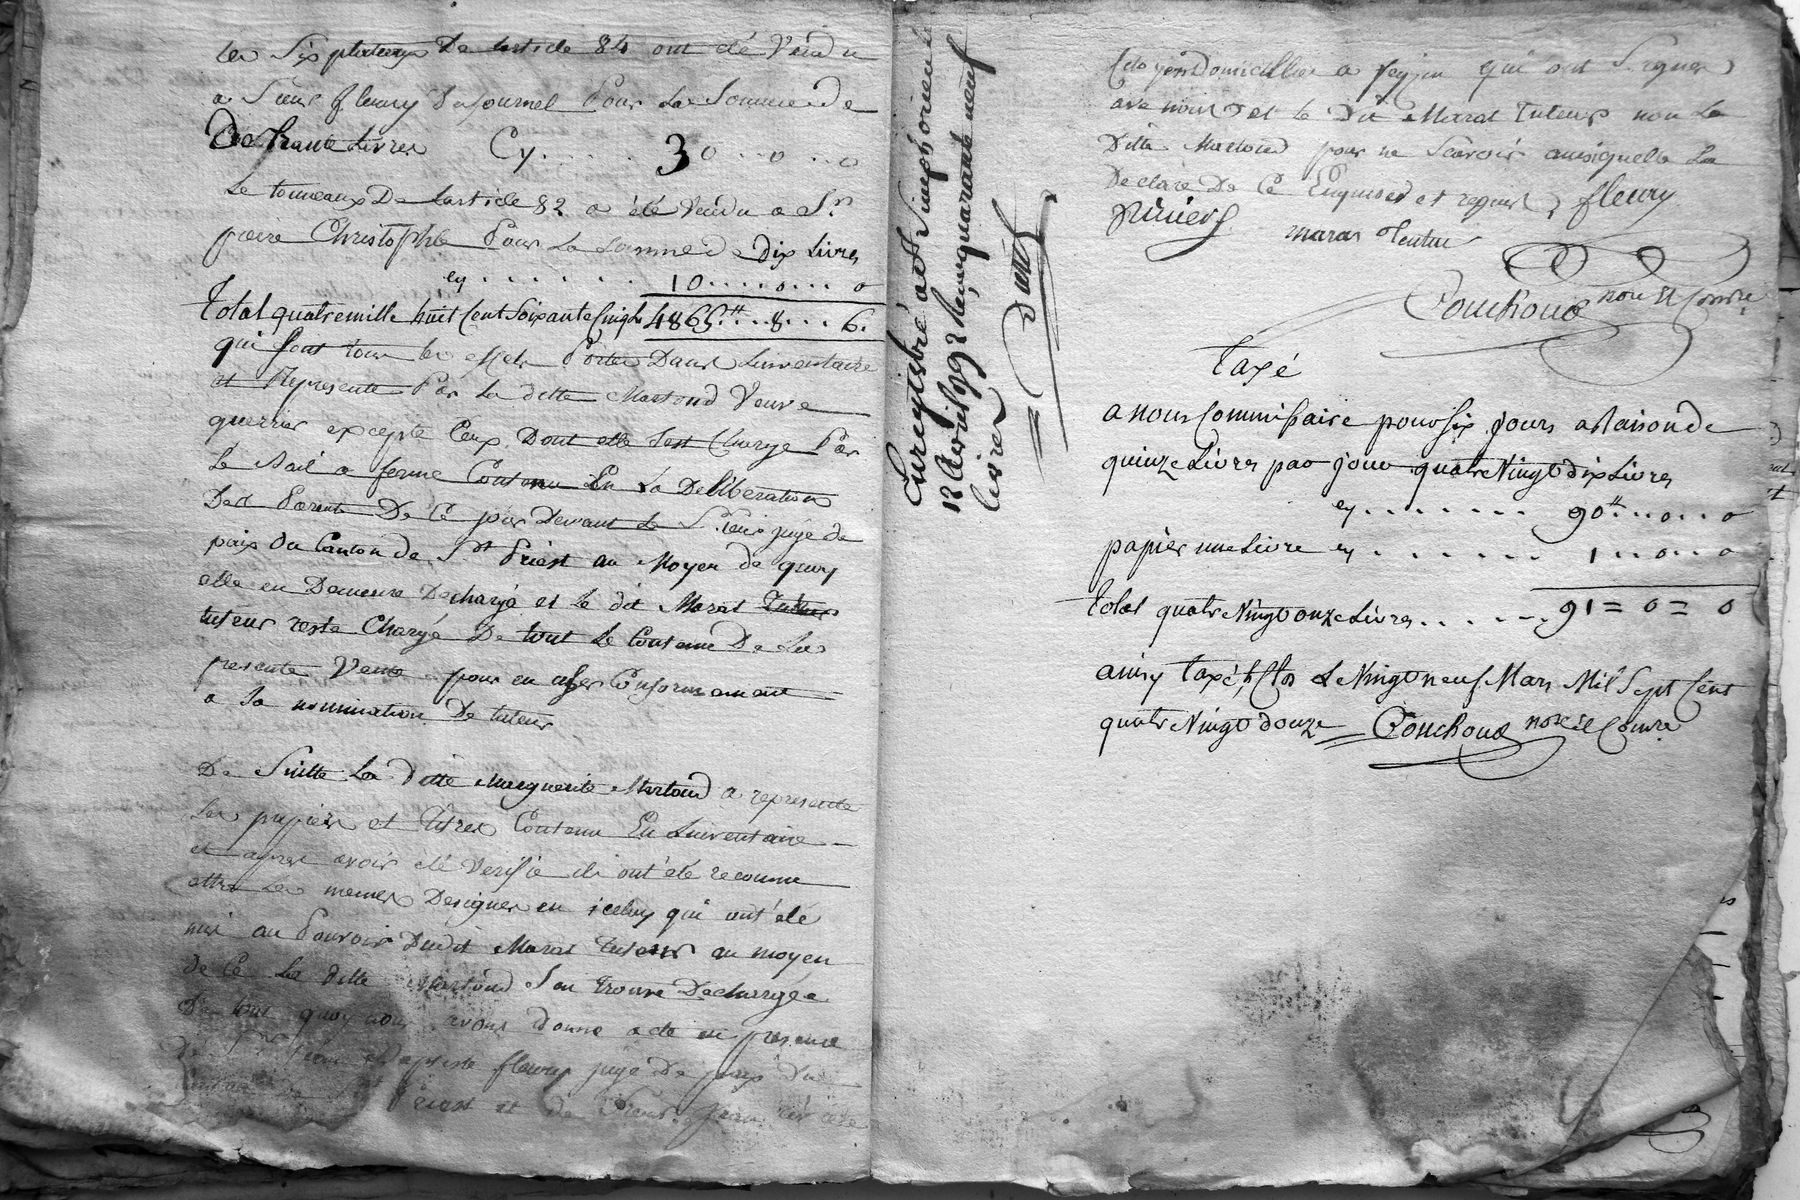 les Six plateaux De Larticle 84 ont été Vendu
a Sieur fleury Dujournel Pour La Somme de
De trante Livres Cy..... 30..0..0
Le tonneaux De Larticle 82 a été Vendu a Sr
pierre Christophle Pour La Somme de dix Livres
cy....... 10....0...0
Total quatremille huit Cent Soixante Cinq L 4865tt..8...6.
qui font tous les effets Portés Dans Linventaire
et Represente Par La ditte Martoud Veuve
guerrier excepte Ceux Dont elle Sest Charge Par
Le Bail a ferme Contenu En La Deliberation
Des Parents De Ce jour Devant Le Sieur juge de
paix du Canton de St Priest au Moyen de quoy
elle en Demeure Decharge et le dit Maras
tuteur reste Chargé De tout Le Contenu De La
presente Vente pour en user Conformement
a Sa nomination De tuteur
De Suitte La ditte Marguerite Martoud a represente
Les papiers et titres Contenu En Linventaire
et apres avoir été Verifié ils ont été reconnu
etre Les memes Designes en iceluy qui ont été
mis au Pouvoir Dudit Maras tuteur au moyen
de Ce La ditte Martoud Sen trouve Dechargée
De tout quoy nous avons donne acte en presence
De Sieur fleury juge De paix du
Canton De St Priest et de Sieur
Enregistré a St Simphorien le
12 Avril 1792 Reçu quarante neuf
livres
Citoyens Domicillies a feyzin qui ont Signes
avec nous et le Dit Maras tuteur non La
Ditte Martoud pour ne Scavoir ainsi quelle La
Declare De Ce Enquise et requise fleury
maras tenteur
Couchoud nore et Comre
Taxé
a nous Commissaire pour Six jours a Raison de
quinze Livres par jour quatre Vingt dix Livres
cy........ 90tt...0..0
papier une Livre cy....... 1..0..0
Total quatre Vingt onze Livres....... 91=0=0
ainsy taxé et Clos Le Vingt neuf Mars Mil Sept Cent
quatre Vingt douze Couchoud nore et Comre